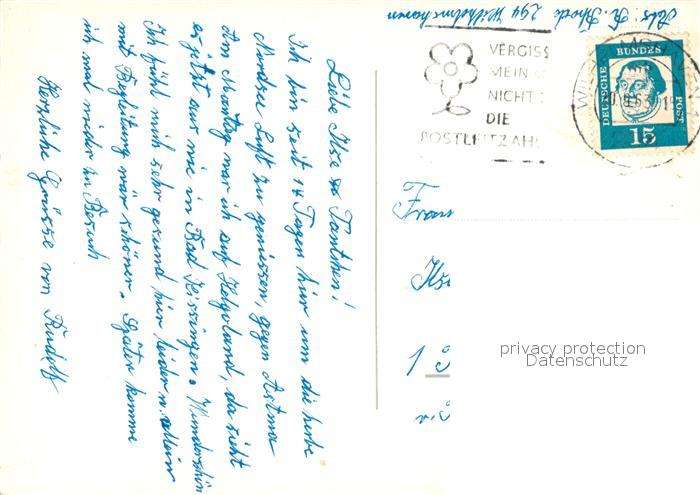 Liebe Ilse u Tantchen!
Ich bin seit 14 Tagen hier um die herbe
Nordsee Luft zu geniessen, gegen Astma
Am Montag war ich auf Helgoland, da sieht
es jetzt aus wie in Bad Kissingen. Wunderschön
Ich fühl mich sehr gesund hier leider n. allein
mit Begleitung wär schöner. Später komme
ich mal wieder zu Besuch
Herzliche Grüsse von Rudolf
Abs: R. 294 Wilhelmshaven
VERGISS
MEIN
NICHT
DIE
POSTLEITZAH
DEUTSCHE BUNDES POST
15
Frau
Ils
1
privacy protection
Datenschutz